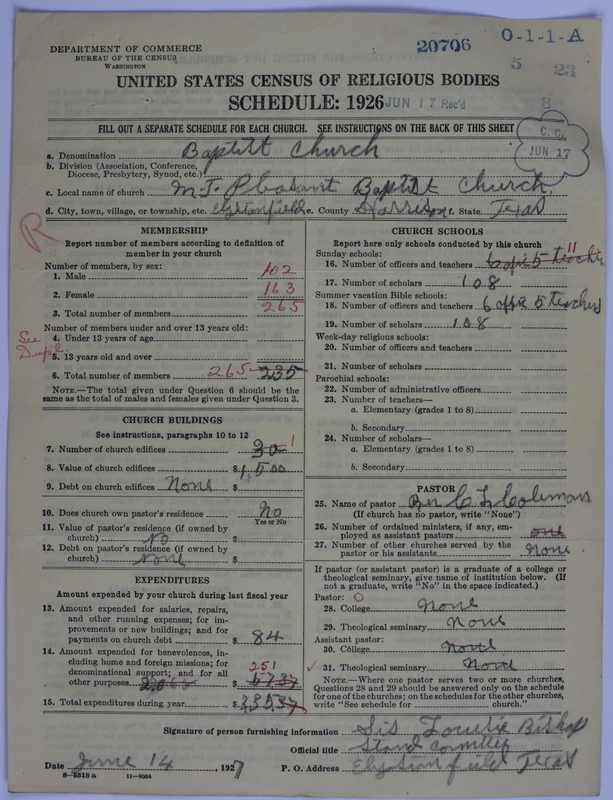 DEPARTMENT OF COMMERCE
BUREAU OF THE CENSUS
WASHINGTON
20706
O-1-1-A
5 23
8
UNITED STATES CENSUS OF RELIGIOUS BODIES
SCHEDULE: 1926
JUN 17 Rec'd
FILL OUT A SEPARATE SCHEDULE FOR EACH CHURCH. SEE INSTRUCTIONS ON THE BACK OF THIS SHEET
C. C.
JUN 17
a. Denomination Baptist Church
b. Division (Association, Conference,
Diocese, Presbytery, Synod, etc.)
c. Local name of church Mt Pleasant Baptist Church
d. City, town, village, or township, etc. Elysianfield e. County Harrison f. State Texas
R
MEMBERSHIP
Report number of members according to definition of
member in your church
Number of members, by sex:
1. Male 102
2. Female 163
3. Total number of members 265
Number of members under and over 13 years old:
See
4. Under 13 years of age
5. 13 years old and over
6. Total number of members 265 235
NOTE.—The total given under Question 6 should be the
same as the total of males and females given under Question 3.
CHURCH BUILDINGS
See instructions, paragraphs 10 to 12
7. Number of church edifices 1
8. Value of church edifices $1,500
9. Debt on church edifices None $
10. Does church own pastor's residence No
Yes or No
11. Value of pastor's residence (if owned by
church) No $
12. Debt on pastor's residence (if owned by
church) None $
EXPENDITURES
Amount expended by your church during last fiscal year
13. Amount expended for salaries, repairs,
and other running expenses; for im-
provements or new buildings; and for
payments on church debt $ 84
14. Amount expended for benevolences, in-
cluding home and foreign missions; for
denominational support; and for all
251
other purposes $
15. Total expenditures during year $ 335
CHURCH SCHOOLS
Report here only schools conducted by this church
Sunday schools:
11
16. Number of officers and teachers 6 offr 5 teachers
17. Number of scholars 108
Summer vacation Bible schools:
18. Number of officers and teachers 6 offr 5 teachers
19. Number of scholars 108
Week-day religious schools:
20. Number of officers and teachers
21. Number of scholars
Parochial schools:
22. Number of administrative officers
23. Number of teachers—
a. Elementary (grades 1 to 8)
b. Secondary
24. Number of scholars—
a. Elementary (grades 1 to 8)
b. Secondary
PASTOR
25. Name of pastor C L Coleman
(If church has no pastor, write "None")
26. Number of ordained ministers, if any, em-
ployed as assistant pastors one
27. Number of other churches served by the
pastor or his assistants None
If pastor (or assistant pastor) is a graduate of a college or
theological seminary, give name of institution below. (If
not a graduate, write "No" in the space indicated.)
Pastor: O
28. College None
29. Theological seminary None
Assistant pastor:
30. College None
31. Theological seminary None
NOTE.—Where one pastor serves two or more churches,
Questions 28 and 29 should be answered only on the schedule
for one of the churches; on the schedules for the other churches,
write "See schedule for church."
Signature of person furnishing information Sis Louetie Bishop
Official title
Date June 14, 1927 P. O. Address Elysianfield Texas
8—5518a 11—9064